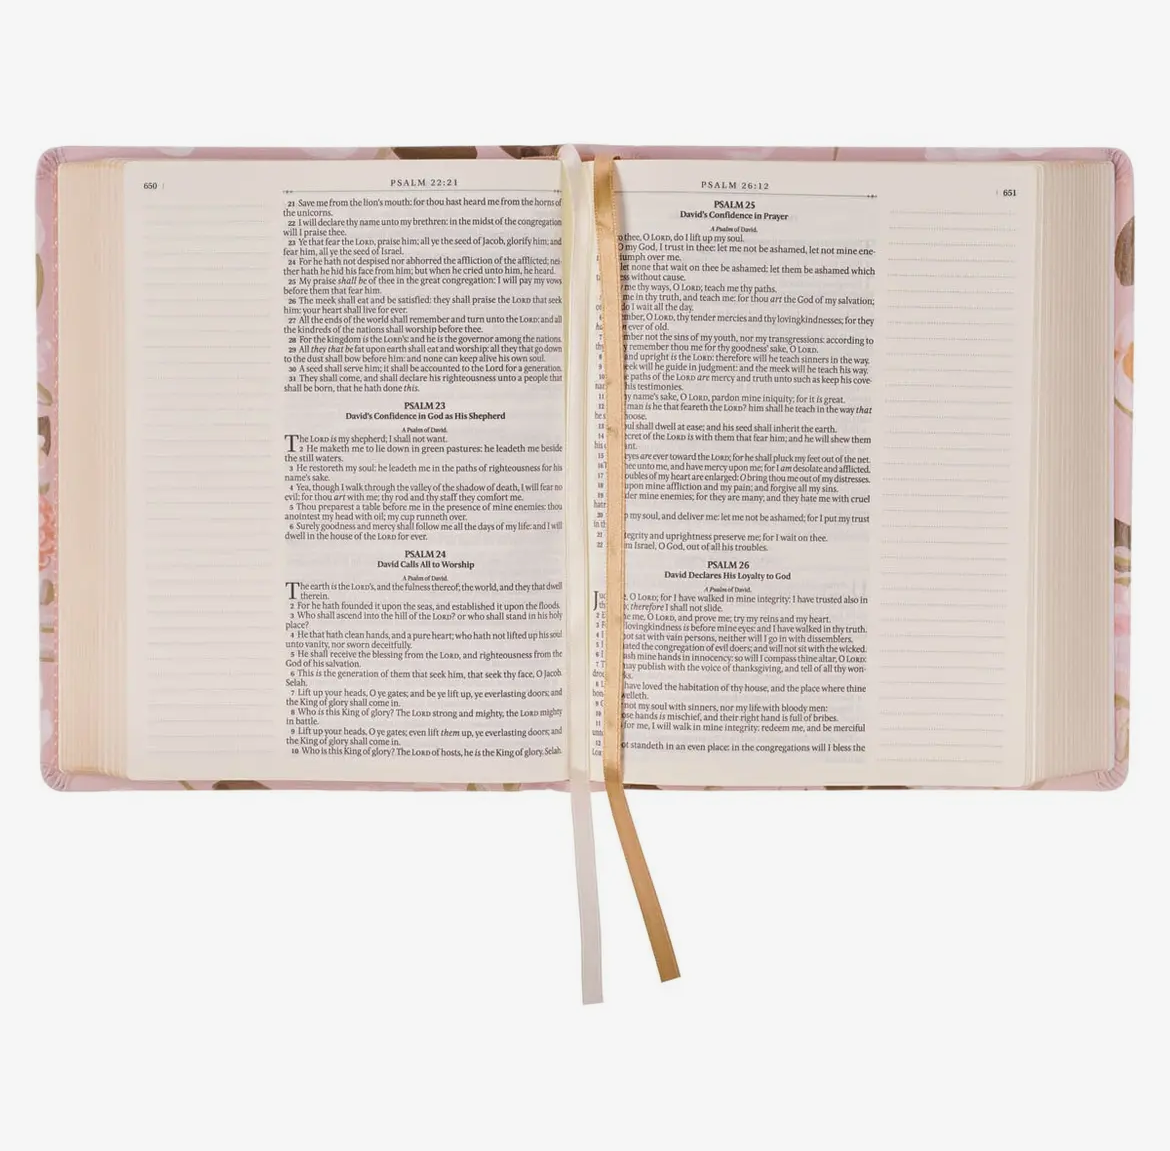 650
PSALM 22:21
21 Save me from the lion's mouth: for thou hast heard me from the horns of
the unicorns.
22 I will declare thy name unto my brethren: in the midst of the congregation
will I praise thee.
23 Ye that fear the LORD, praise him; all ye the seed of Jacob, glorify him; and
fear him, all ye the seed of Israel.
24 For he hath not despised nor abhorred the affliction of the afflicted; nei-
ther hath he hid his face from him; but when he cried unto him, he heard.
25 My praise shall be of thee in the great congregation: I will pay my vows
before them that fear him.
26 The meek shall eat and be satisfied: they shall praise the LORD that seek
him: your heart shall live for ever.
27 All the ends of the world shall remember and turn unto the LORD: and all
the kindreds of the nations shall worship before thee.
28 For the kingdom is the LORD's: and he is the governor among the nations.
29 All they that be fat upon earth shall eat and worship: all they that go down
to the dust shall bow before him: and none can keep alive his own soul.
30 A seed shall serve him; it shall be accounted to the Lord for a generation.
31 They shall come, and shall declare his righteousness unto a people that
shall be born, that he hath done this.
PSALM 23
David's Confidence in God as His Shepherd
A Psalm of David.
The LORD is my shepherd; I shall not want.
2 He maketh me to lie down in green pastures: he leadeth me beside
the still waters.
3 He restoreth my soul: he leadeth me in the paths of righteousness for his
name's sake.
4 Yea, though I walk through the valley of the shadow of death, I will fear no
evil: for thou art with me; thy rod and thy staff they comfort me.
5 Thou preparest a table before me in the presence of mine enemies: thou
anointest my head with oil; my cup runneth over.
6 Surely goodness and mercy shall follow me all the days of my life: and I will
dwell in the house of the LORD for ever.
PSALM 24
David Calls All to Worship
A Psalm of David.
The earth is the LORD's, and the fulness thereof; the world, and they that dwell
therein.
2 For he hath founded it upon the seas, and established it upon the floods.
3 Who shall ascend into the hill of the LORD? or who shall stand in his holy
place?
4 He that hath clean hands, and a pure heart; who hath not lifted up his soul
unto vanity, nor sworn deceitfully.
5 He shall receive the blessing from the LORD, and righteousness from the
God of his salvation.
6 This is the generation of them that seek him, that seek thy face, O Jacob.
Selah.
7 Lift up your heads, O ye gates; and be ye lift up, ye everlasting doors; and
the King of glory shall come in.
8 Who is this King of glory? The LORD strong and mighty, the LORD mighty
in battle.
9 Lift up your heads, O ye gates; even lift them up, ye everlasting doors; and
the King of glory shall come in.
10 Who is this King of glory? The LORD of hosts, he is the King of glory. Selah.
PSALM 26:12
651
PSALM 25
David's Confidence in Prayer
A Psalm of David.
thee, O LORD, do I lift up my soul.
O my God, I trust in thee: let me not be ashamed, let not mine ene-
over me.
let none that wait on thee be ashamed: let them be ashamed which
without cause.
me thy ways, O LORD; teach me thy paths.
me in thy truth, and teach me: for thou art the God of my salvation;
do I wait all the day.
O LORD, thy tender mercies and thy lovingkindnesses; for they
ever of old.
7 not the sins of my youth, nor my transgressions: according to
remember thou me for thy goodness' sake, O LORD.
8 and upright is the LORD: therefore will he teach sinners in the way.
9 will he guide in judgment: and the meek will he teach his way.
10 paths of the LORD are mercy and truth unto such as keep his cove-
his testimonies.
11 name's sake, O LORD, pardon mine iniquity; for it is great.
12 man is he that feareth the LORD? him shall he teach in the way that
13 shall dwell at ease; and his seed shall inherit the earth.
14 of the LORD is with them that fear him; and he will shew them
15 eyes are ever toward the LORD; for he shall pluck my feet out of the net.
16 unto me, and have mercy upon me; for I am desolate and afflicted.
17 of my heart are enlarged: O bring thou me out of my distresses.
18 upon mine affliction and my pain; and forgive all my sins.
19 mine enemies; for they are many; and they hate me with cruel
20 my soul, and deliver me: let me not be ashamed; for I put my trust
21 and uprightness preserve me; for I wait on thee.
22 Israel, O God, out of all his troubles.
PSALM 26
David Declares His Loyalty to God
A Psalm of David.
O LORD; for I have walked in mine integrity: I have trusted also in
therefore I shall not slide.
2 me, O LORD, and prove me; try my reins and my heart.
3 lovingkindness is before mine eyes: and I have walked in thy truth.
4 I not sat with vain persons, neither will I go in with dissemblers.
5 the congregation of evil doers; and will not sit with the wicked.
6 I mine hands in innocency: so will I compass thine altar, O LORD:
7 may publish with the voice of thanksgiving, and tell of all thy won-
have loved the habitation of thy house, and the place where thine
9 not my soul with sinners, nor my life with bloody men:
10 hands is mischief, and their right hand is full of bribes.
11 for me, I will walk in mine integrity: redeem me, and be merciful
12 standeth in an even place: in the congregations will I bless the